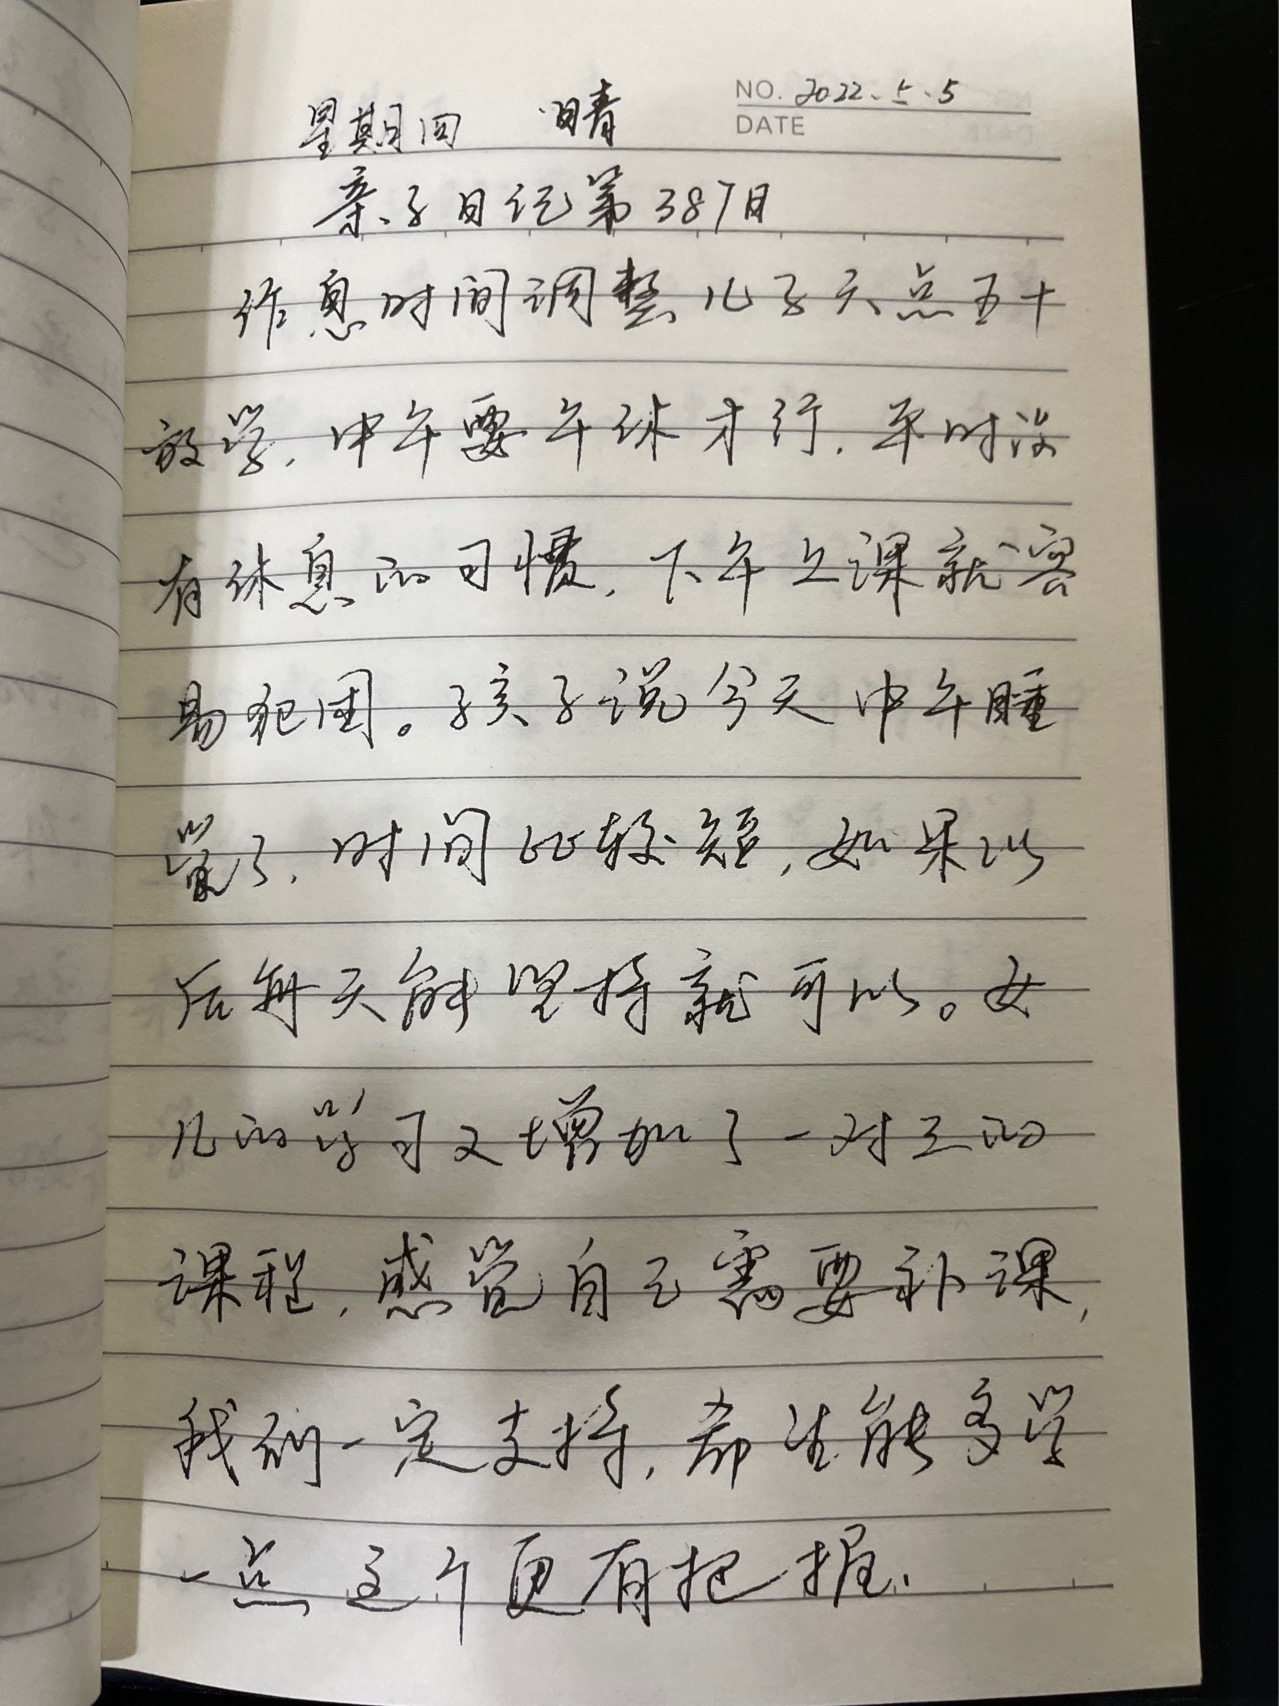 NO. 2022、5.5
DATE
星期四 晴
亲子日记第387日
作息时间调整儿子六点五十
放学，中午要午休才行，平时没
有休息的习惯，下午上课就容
易犯困。孩子说今天中午睡
觉了，时间比较短，如果以
后每天能坚持就可以。女
儿的学习又增加了一对三的
课程，感觉自己需要补课，
我们一定支持，希望能多学
一点 这个更有把握.